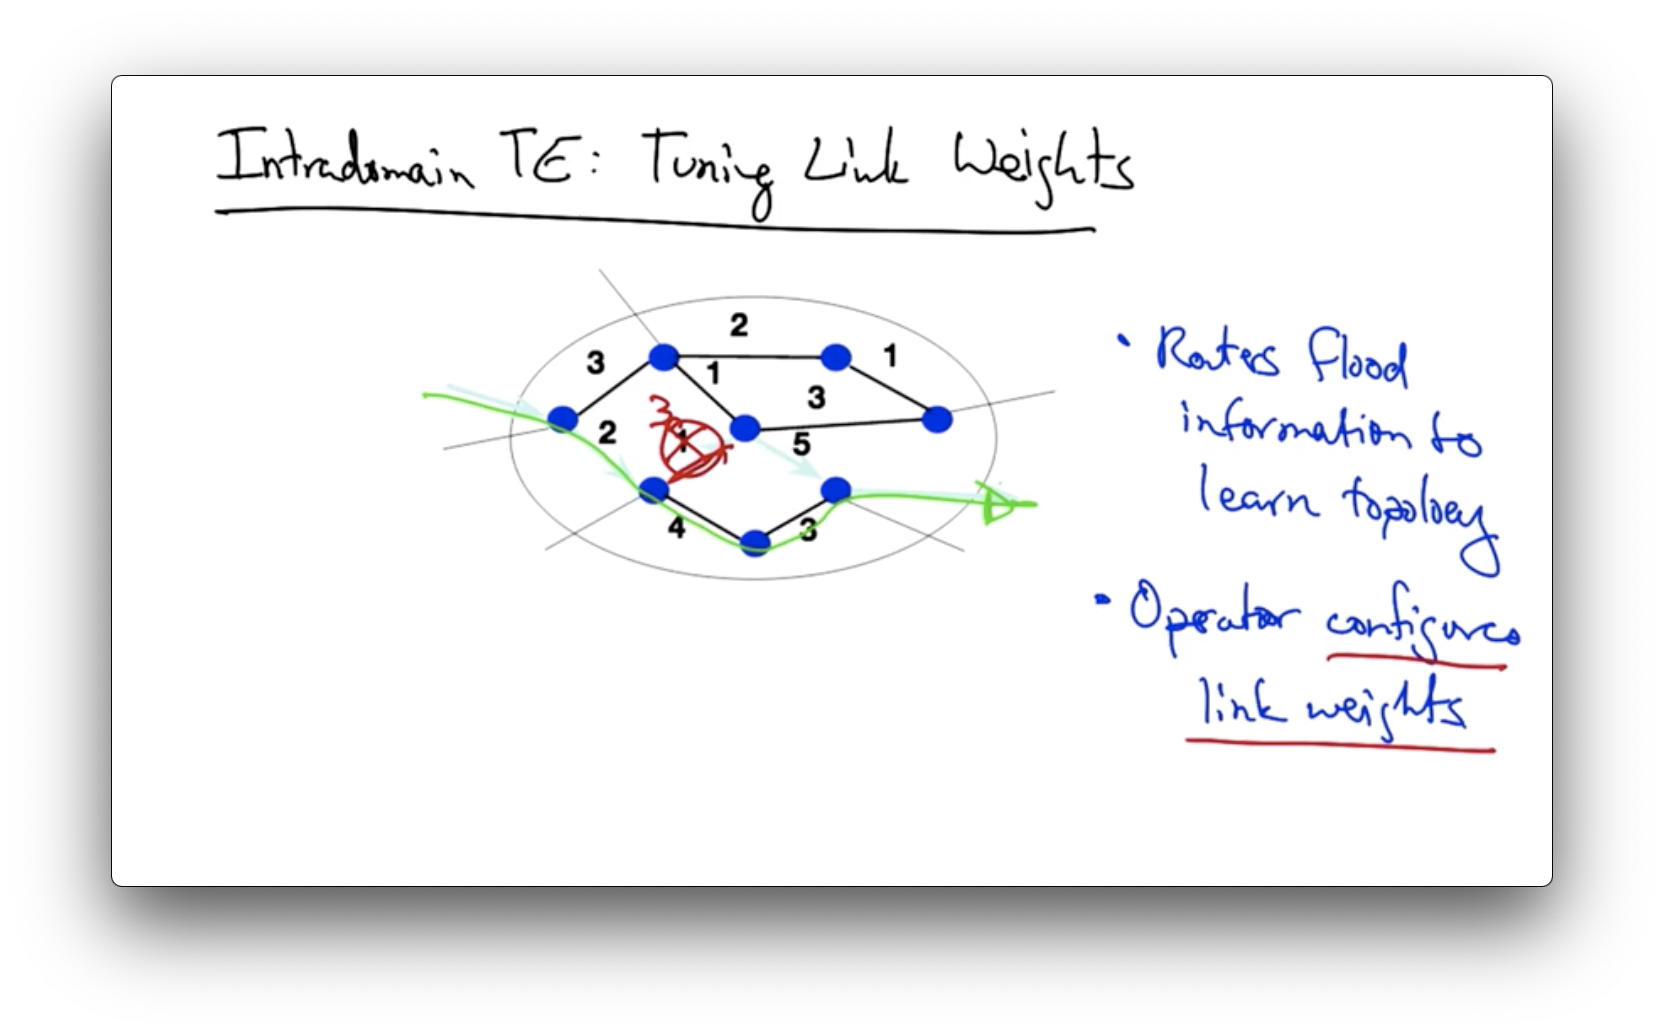 Intradomain TE: Tuning Link Weights
2
3
1
1
3
2
3
1
5
4
3
• Routers flood
information to
learn topology
• Operator configures
link weights